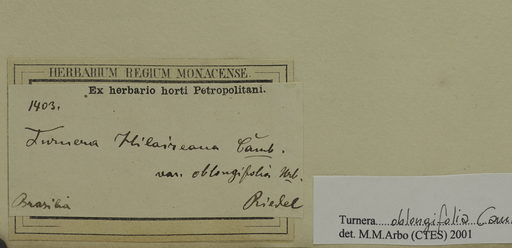 HERBARIUM REGIUM MONACENSE.
Ex herbario horti Petropolitani.
1403.
Turnera Hilaireana Camb.
var. oblongifolia Urb.
Brasilia Riedel
Turnera.....oblongifolia Cam
det. M.M.Arbo (CTES) 2001